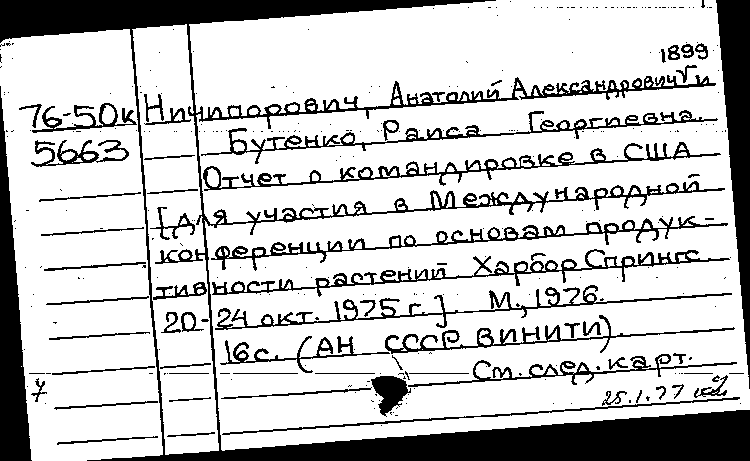 1899
76-50к Ничипорович, Анатолий Александрович и
5663 Бутенко, Раиса Георгиевна.
Отчет о командировке в США
[для участия в Международной
конференции по основам продук-
тивности растений Харбор Спрингс
20-24 окт. 1975 г.]. М., 1976.
16 с. (АН СССР. ВИНИТИ).
См. след. карт.
25.1.77